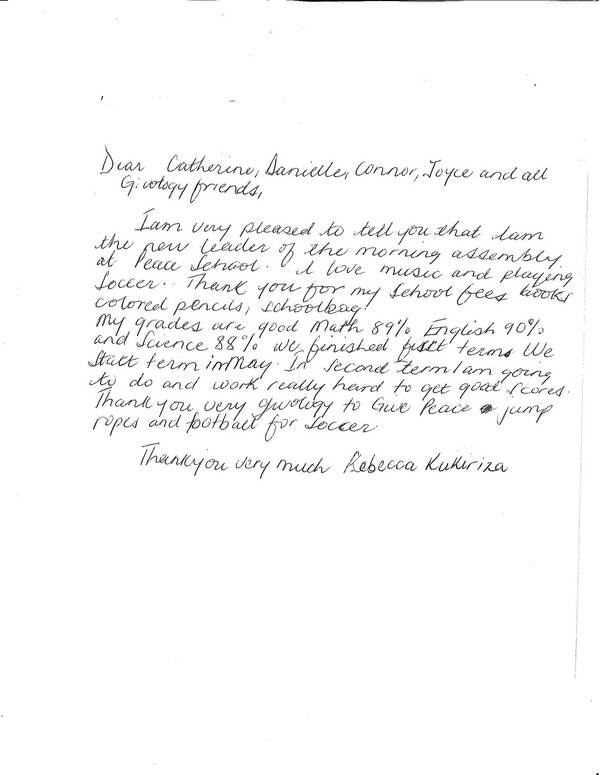 Dear Catherine, Danielle, Connor, Joyce and all
Givology friends,
I am very pleased to tell you that I am
the new leader of the morning assembly
at Peace School. I love music and playing
Soccer. Thank you for my school fees books
colored pencils, schoolbag.
My grades are good Math 89% English 90%
and Science 88% We finished first term. We
Statt term in May. In second term I am going
to do and work really hard to get goat scores.
Thank you very givology to Give Peace jump
ropes and football for soccer.
Thank you very much Rebecca Kukiriza